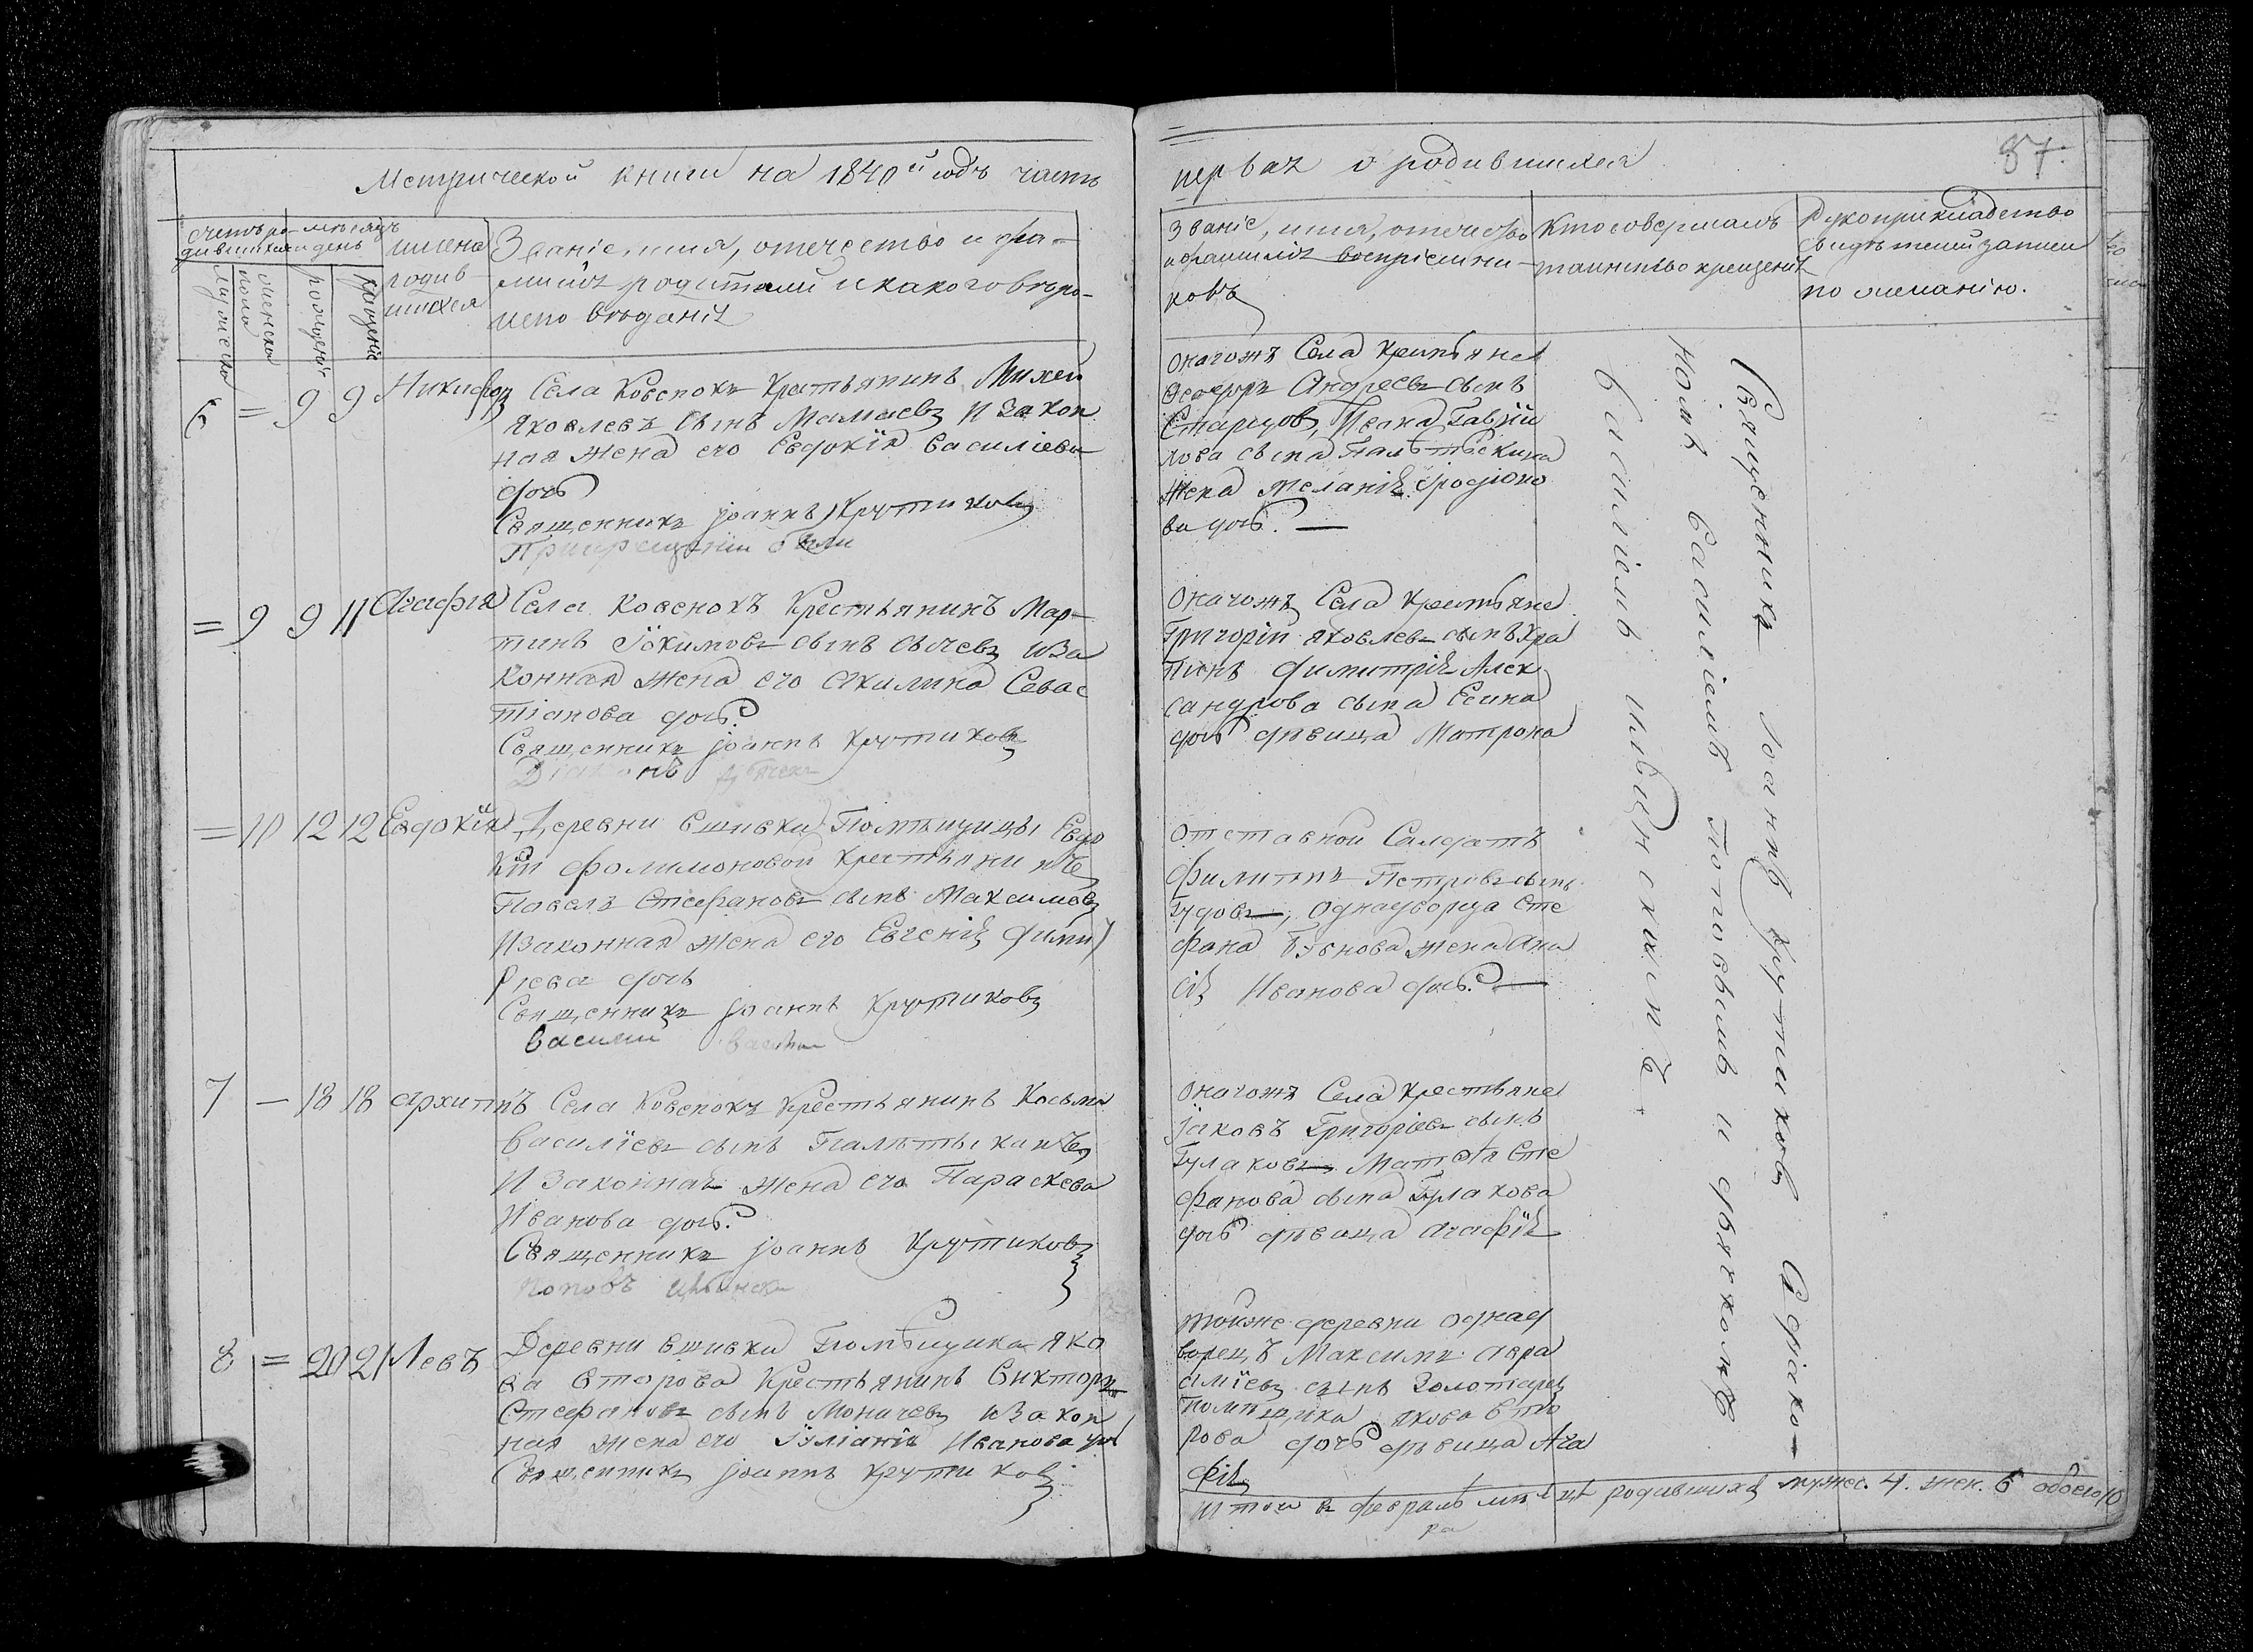 Метрической книги на 1840й годъ часть
первая о родившихся
87.
счетъ ро-
дившихся
мѣсяцъ
и день
мужеска
женска
пола
рожденія
крещенія
имена
родив-
шихся
Званіе, имя, отечество и фа-
милія родителей и какого вѣро-
исповѣданія
Званіе, имя, отечество
и фамилія воспріемни-
ковъ
Кто совершалъ
таинство крещенія
Рукоприкладство
свидѣтелей записи
по желанію.
6 = 9 9 Никифоръ
Села Ковенокъ Крестьянинъ Михей
Яковлевъ сынъ Мамаевъ И Закон
ная жена его Евдокія Василіева
дочь
Священникъ Іоаннъ Крутиковъ
были
Оногожъ Села Крестьяне
Ѳеодоръ Андреевъ сынъ
Старцовъ, Ивана Гаври
лова сына
жена Меланія Іродіоно
ва дочь. —
= 9 9 11 Агафія
Села Ковенокъ Крестьянинъ Мар-
тинъ Іокимовъ сынъ Сычевъ и За
конная жена его Акилина Севас
тіанова дочь.
Священникъ Іоаннъ Крутиковъ
Діаконъ
Оногожъ Села Крестьяне
Григорій Яковлевъ сынъ Хра
Димитрія Алек
сандрова сына Есина
дочь дѣвица Матрона
= 10 12 12 Евдокія
Деревни Вшивки Помѣщицы Евдо
кіи Филимоновой Крестьянинъ
Павелъ Стефановъ сынъ Максимовъ
И законная жена его Евгенія Дими
тріева дочь
Священникъ Іоаннъ Крутиковъ
Василій
Отставной Салдатъ
Филиппъ Петровъ сынъ
Гудовъ, Однадворца Сте
фана жена Ана
сія Иванова дочь. —
7 — 18 18 Архиппъ
Села Ковенокъ Крестьянинъ Косьма
Василіевъ сынъ
И Законная жена его Параскева
Иванова дочь.
Священникъ Іоаннъ Крутиковъ
Поповъ
Оногожъ Села Крестьяне
Іаковъ Григоріевъ сынъ
Гулаковъ, Матѳія Сте
фанова сына Гулакова
дочь дѣвица Агафія
8 = 20 21 Левъ
Деревни Вшивки Помѣщика Яко
ва Второва Крестьянинъ Викторъ
Стефановъ сынъ Моничевъ и Закон
ная жена его Іуліанія Иванова дочь
Священникъ Іоаннъ Крутиковъ
Тойже деревни однад
ворецъ Максимъ Авра
аміевъ сынъ Золотаревъ
Помѣщика Якова Вто
рова дочь дѣвица Ага
фія
Священникъ Іоаннъ Крутиковъ С Діако-
номъ Василіемъ Поповымъ и дьячкомъ
Василіемъ
Итого в февралѣ мѣсяцѣ родившихъ мужес. 4. жен. 6 обоего 10